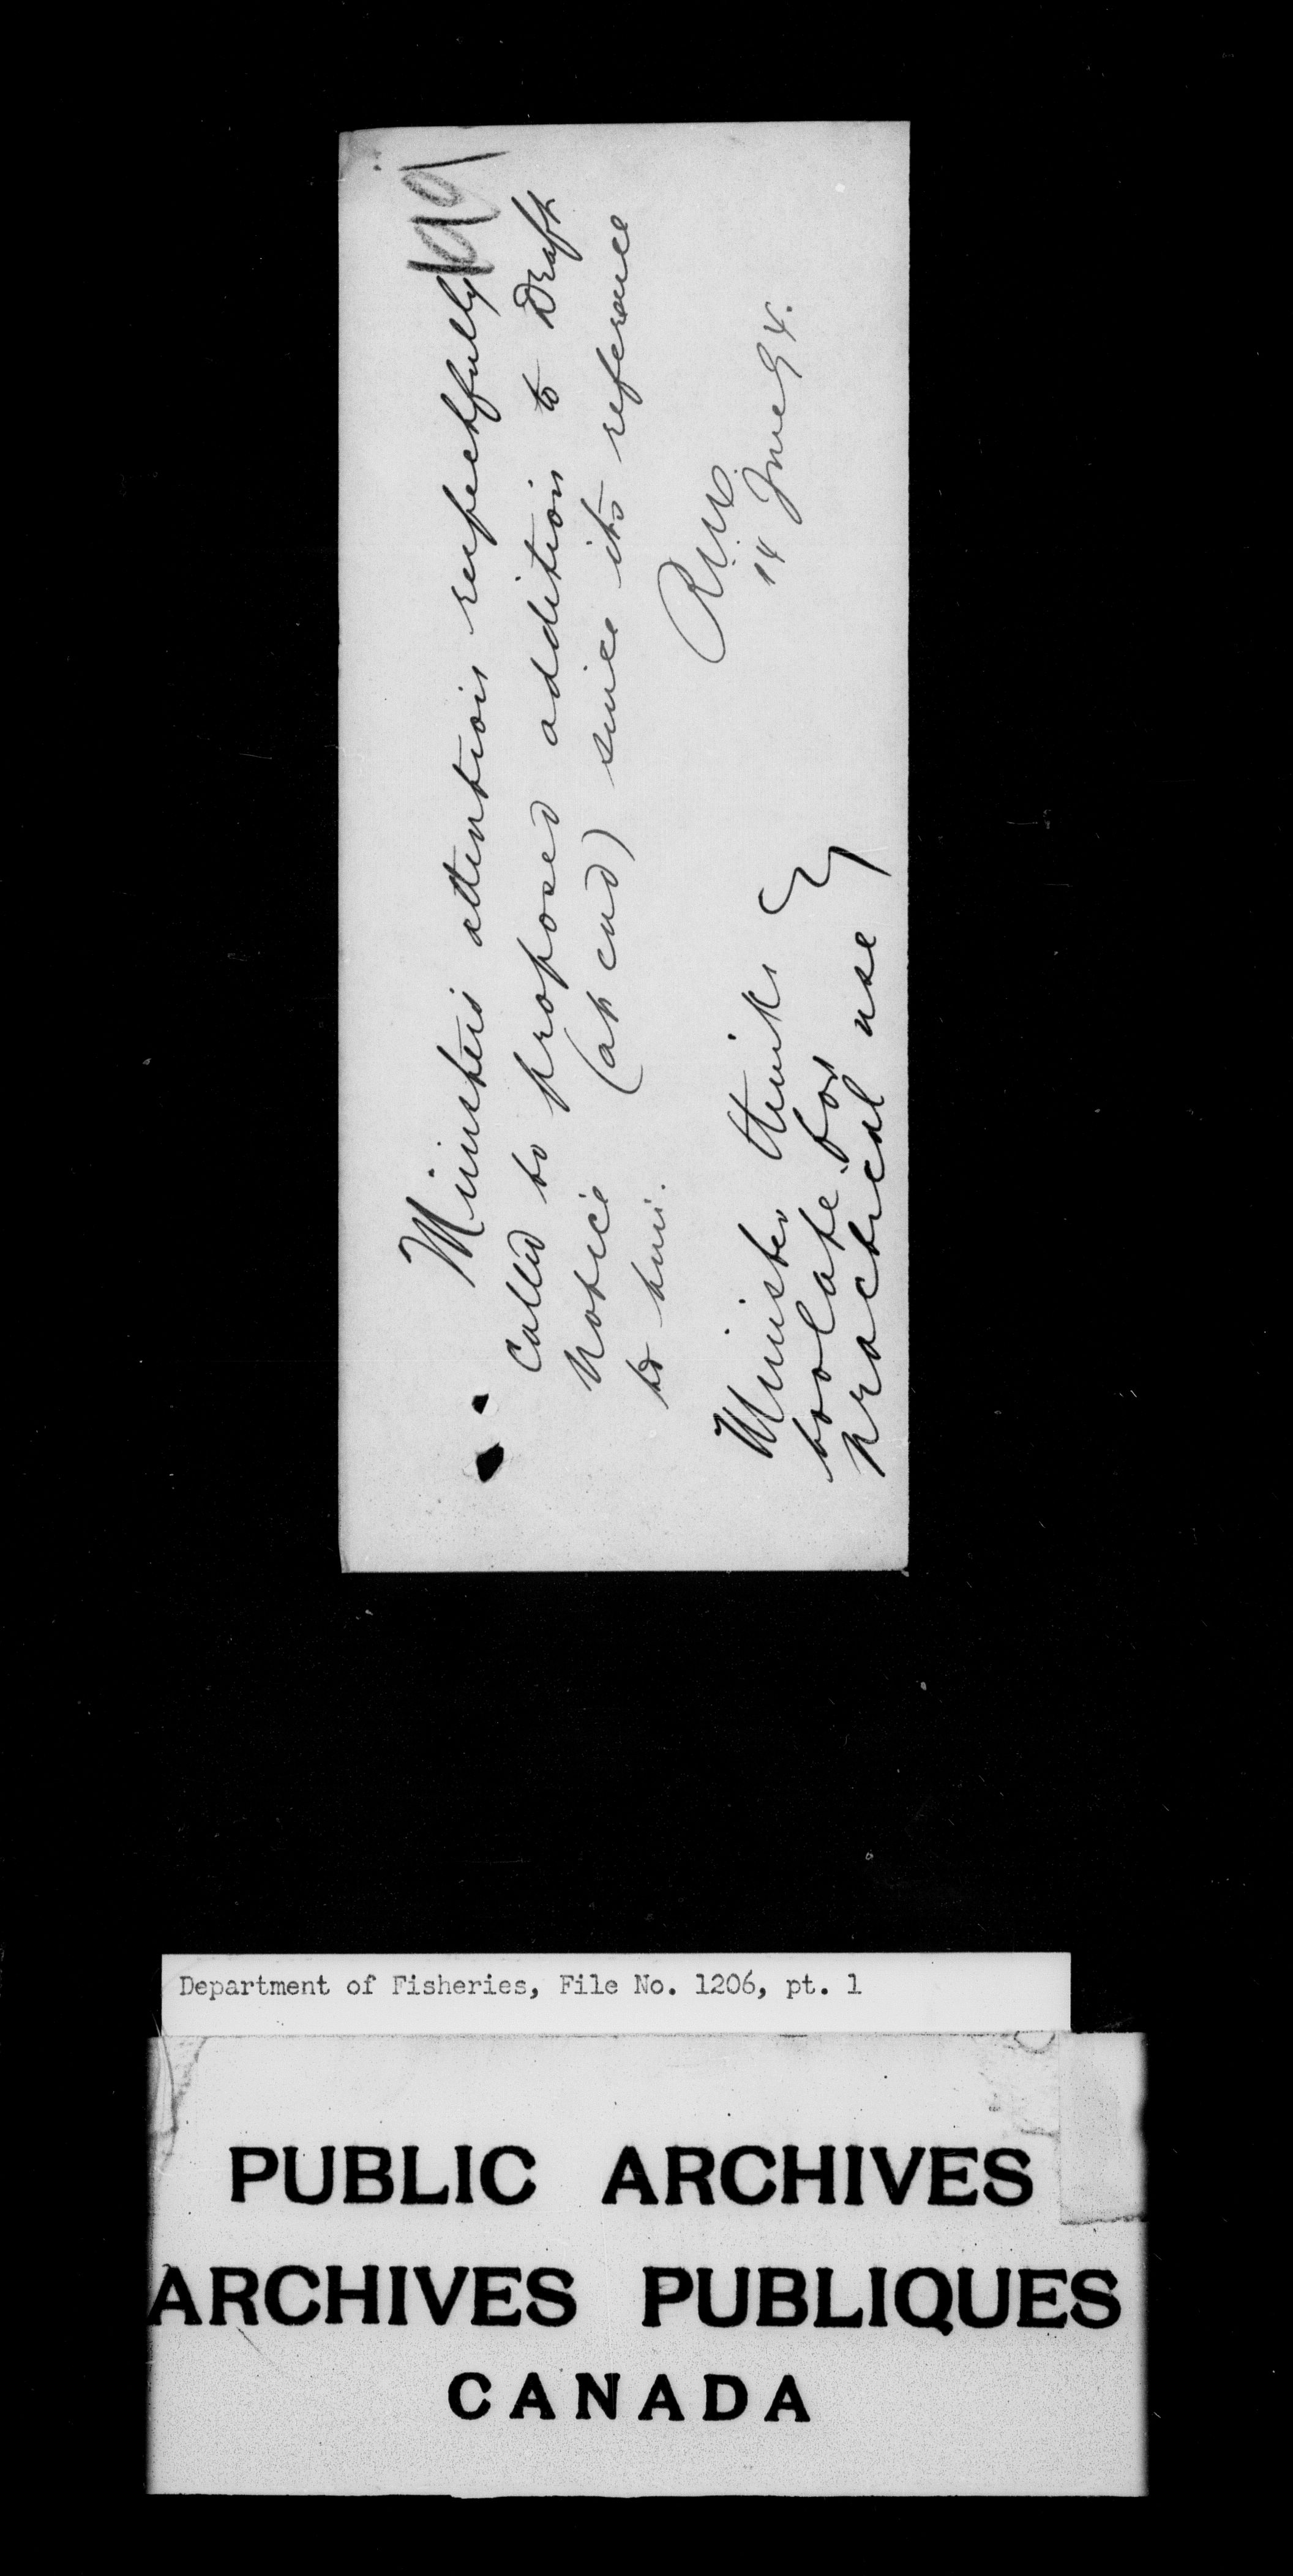 Ministers attention respectfully
called to proposed addition to Draft
Notice (at end) since its reference
to him.
14 June 94.
Minister thinks
too late for
practical use
Department of Fisheries, File No. 1206, pt. 1
PUBLIC ARCHIVES
ARCHIVES PUBLIQUES
CANADA